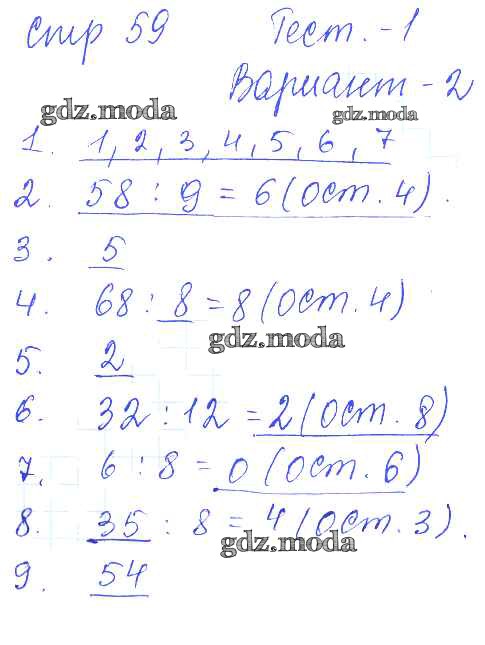 стр 59 Тест. -1
Вариант - 2
gdz.moda gdz.moda
1. 1, 2, 3, 4, 5, 6, 7
2. 58 : 9 = 6 (ост. 4).
3. 5
4. 68 : 8 = 8 (ост. 4)
gdz.moda
5. 2
6. 32 : 12 = 2 (ост. 8)
7. 6 : 8 = 0 (ост. 6)
8. 35 : 8 = 4 (ост. 3).
gdz.moda
9. 54